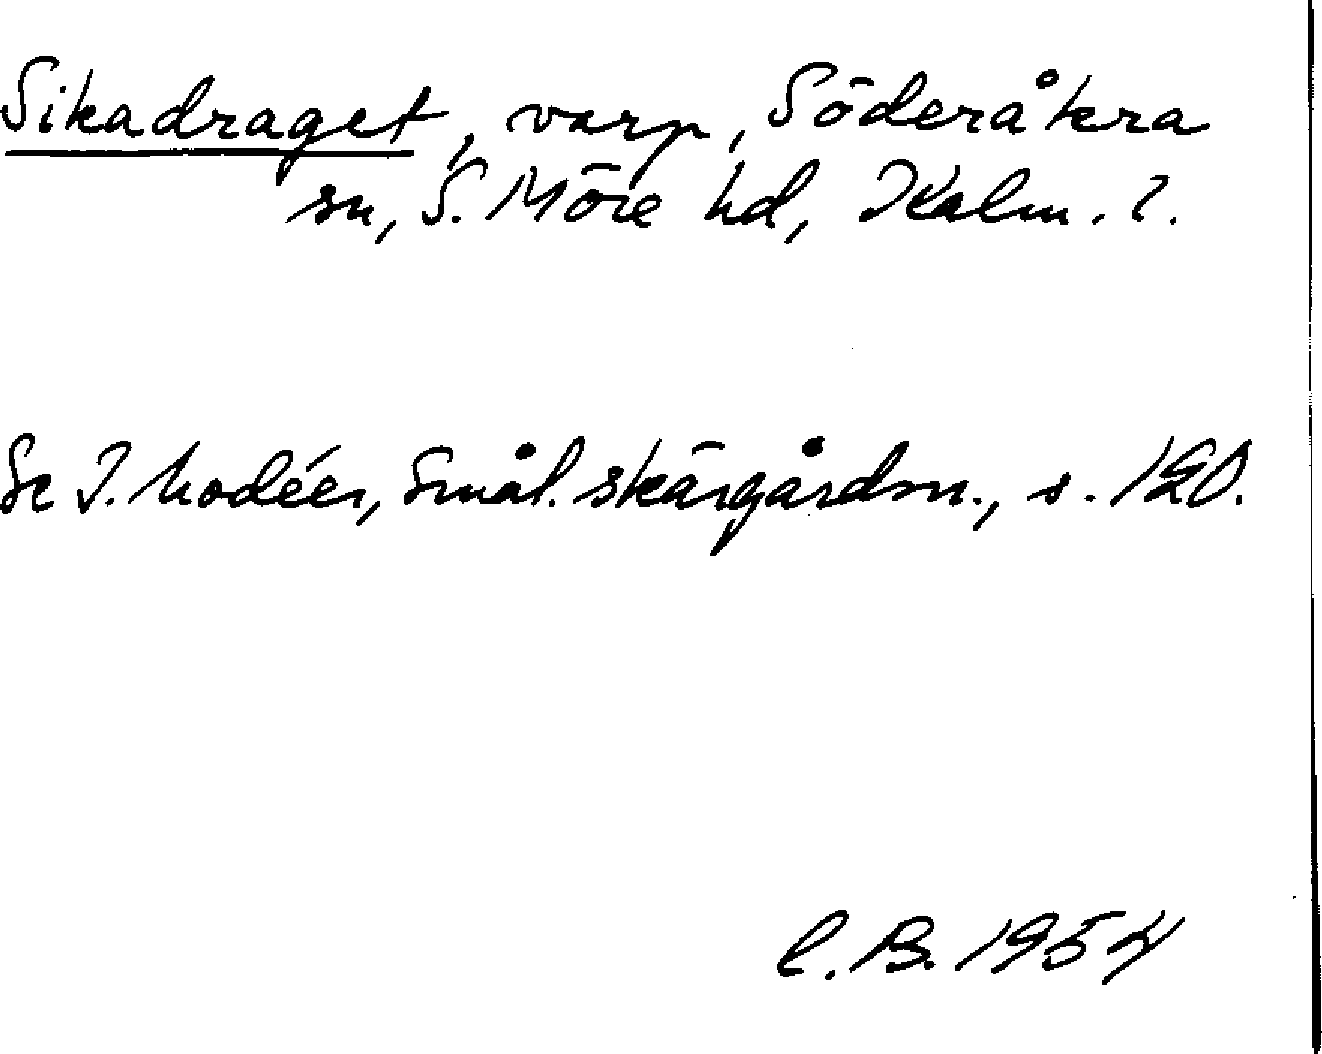 Sikadraget, varp, Söderåkra
sn, S. Möre hd, Kalm. l.
Se I. Modéer, Smål. skärgårdsn., s. 120.
C. B. 1954